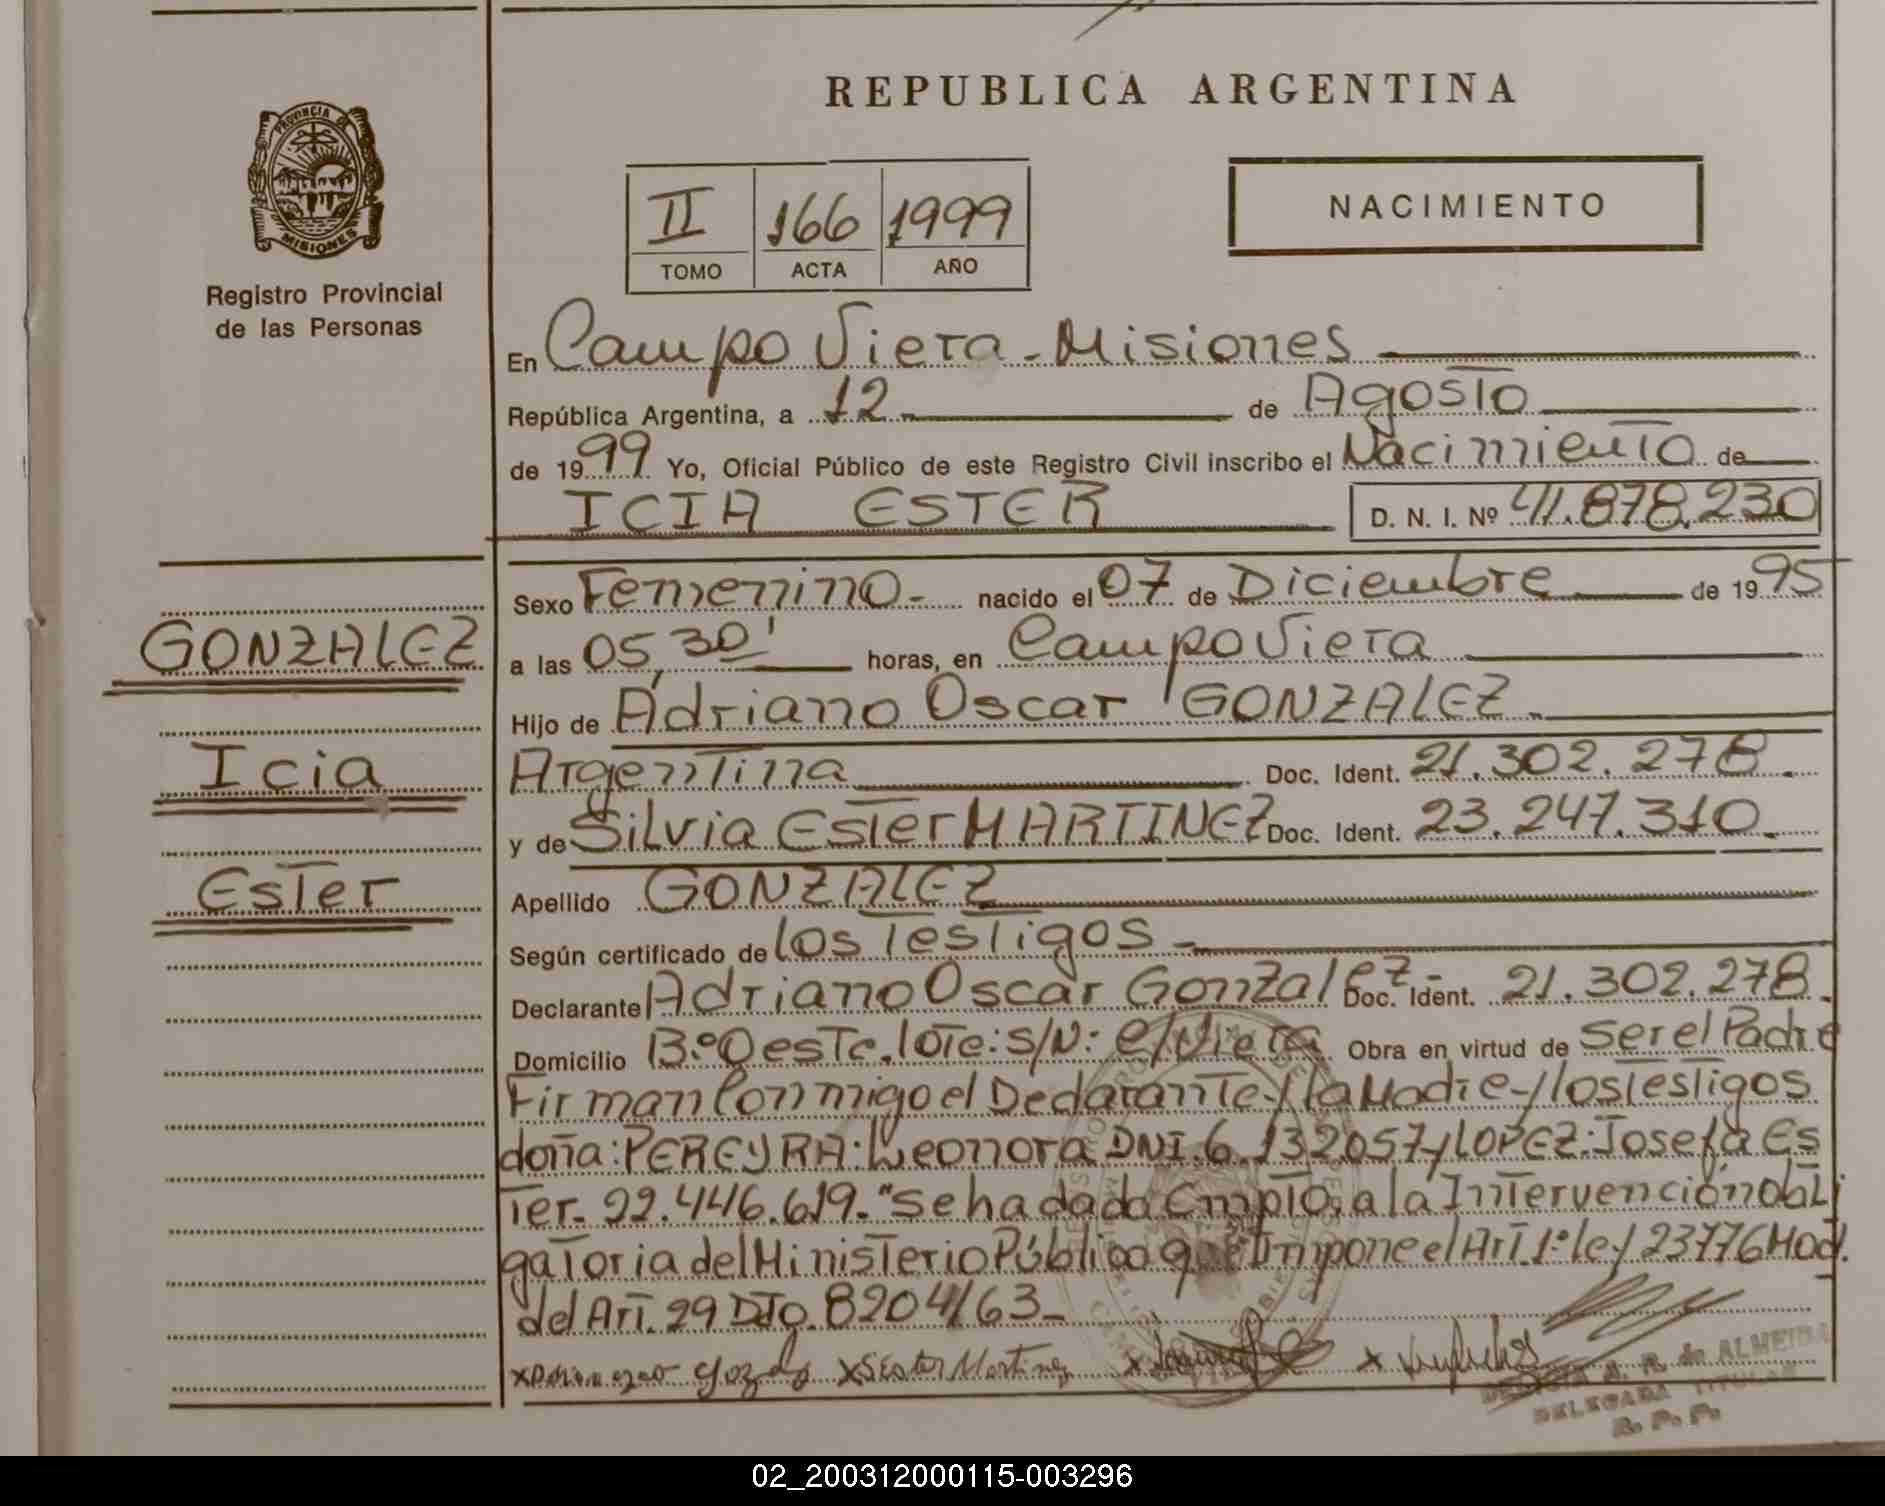 REPUBLICA ARGENTINA
PROVINCIA DE
MISIONES
Registro Provincial
de las Personas
II 166 1999
TOMO ACTA AÑO
NACIMIENTO
En Campo Viera - Misiones
República Argentina, a 12 de Agosto
de 1999 Yo, Oficial Público de este Registro Civil inscribo el Nacimiento de
ICIA ESTER D. N. I. Nº 41.878.230
Sexo Femenino - nacido el 07 de Diciembre de 1995
GONZALEZ
a las 05,30' horas, en Campo Viera
Hijo de Adriano Oscar GONZALEZ -
Icia
Argentina Doc. Ident. 21.302.278 -
y de Silvia Ester MARTINEZ Doc. Ident. 23.247.310 -
Ester
Apellido GONZALEZ
Según certificado de los Testigos -
Declarante Adriano Oscar Gonzalez - Doc. Ident. 21.302.278 -
Domicilio B:º Oeste. lote: s/N: C/Viera Obra en virtud de ser el Padre
Firman Conmigo el Declarante y la Madre y los Testigos
doña: PEREYRA: Leonora DNI. 6.132057 y LOPEZ: Josefa Es
Ter - 22.446.619. "Se ha dado Cmpto, a la Intervención obli
gatoria del Ministerio Público que Impone el Art. 1º ley 23776 Mod.
del Art. 29 DTO. 8204/63 -
x x S Ester Martinez x x
A. R. de ALMEIDA
DELEGADA TITULAR
R. P. P.
02_200312000115-003296